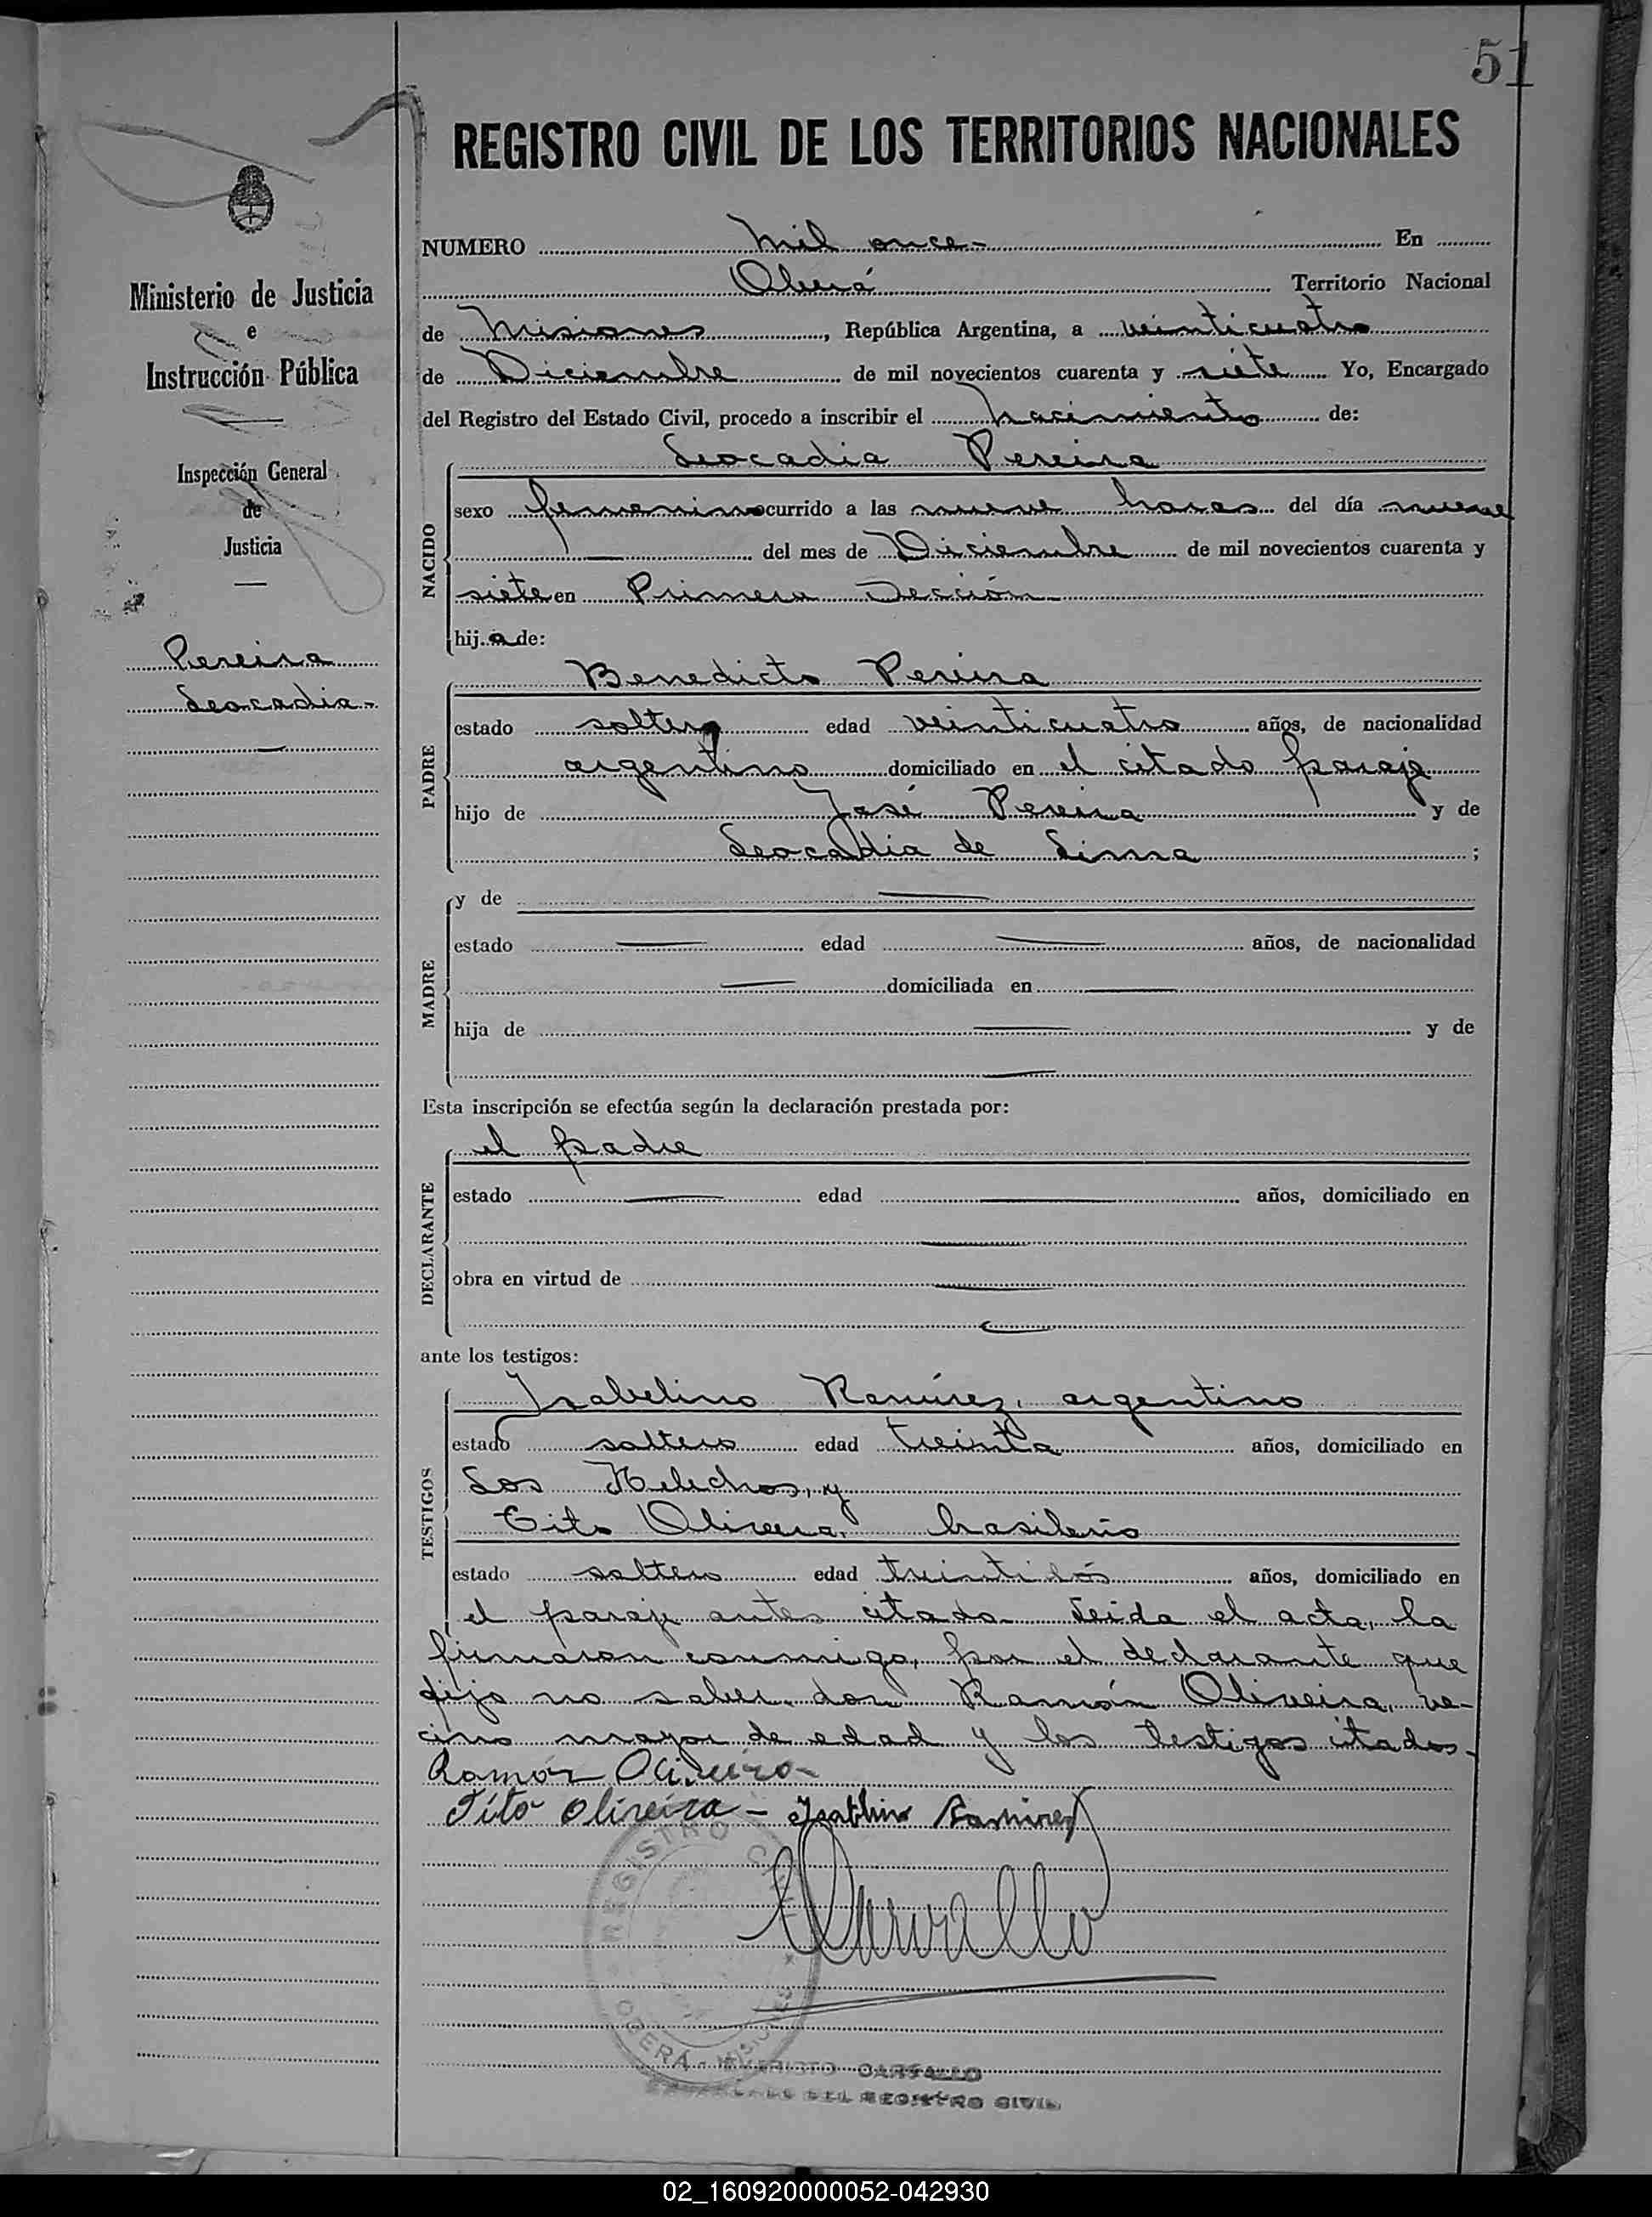 51
REGISTRO CIVIL DE LOS TERRITORIOS NACIONALES
Ministerio de Justicia
e
Instrucción Pública
Inspección General
de
Justicia
Pereira
Leocadia-
NUMERO Mil once- En
Oberá Territorio Nacional
de Misiones, República Argentina, a veinticuatro
de Diciembre de mil novecientos cuarenta y siete Yo, Encargado
del Registro del Estado Civil, procedo a inscribir el nacimiento de:
Leocadia Pereira
NACIDO
sexo femenino ocurrido a las nueve horas del día nueve
del mes de Diciembre de mil novecientos cuarenta y
siete en Primera Sección
hij a de:
Benedicto Pereira
PADRE
estado soltero edad veinticuatro años, de nacionalidad
argentino domiciliado en el citado paraje
hijo de José Pereira y de
Leocadia de Lima ;
MADRE
y de
estado edad años, de nacionalidad
domiciliada en
hija de y de
Esta inscripción se efectúa según la declaración prestada por:
el padre
DECLARANTE
estado edad años, domiciliado en
obra en virtud de
ante los testigos:
TESTIGOS
Isabelino Ramírez, argentino
estado soltero edad treinta años, domiciliado en
Los Helechos, y
Tito Olivera, brasileño
estado soltero edad treintidós años, domiciliado en
el paraje antes citado. Leida el acta, la
firmaron conmigo, por el declarante que
dijo no saber, don Ramón Oliveira, ve-
cino mayor de edad y los testigos citados-
Ramón Oliveira
Tito Oliveira - Isabelino Ramirez
Carvallo
REGISTRO CIVIL
OBERÁ - MISIONES
EVARISTO CARVALLO
ENCARGADO DEL REGISTRO CIVIL
02_160920000052-042930